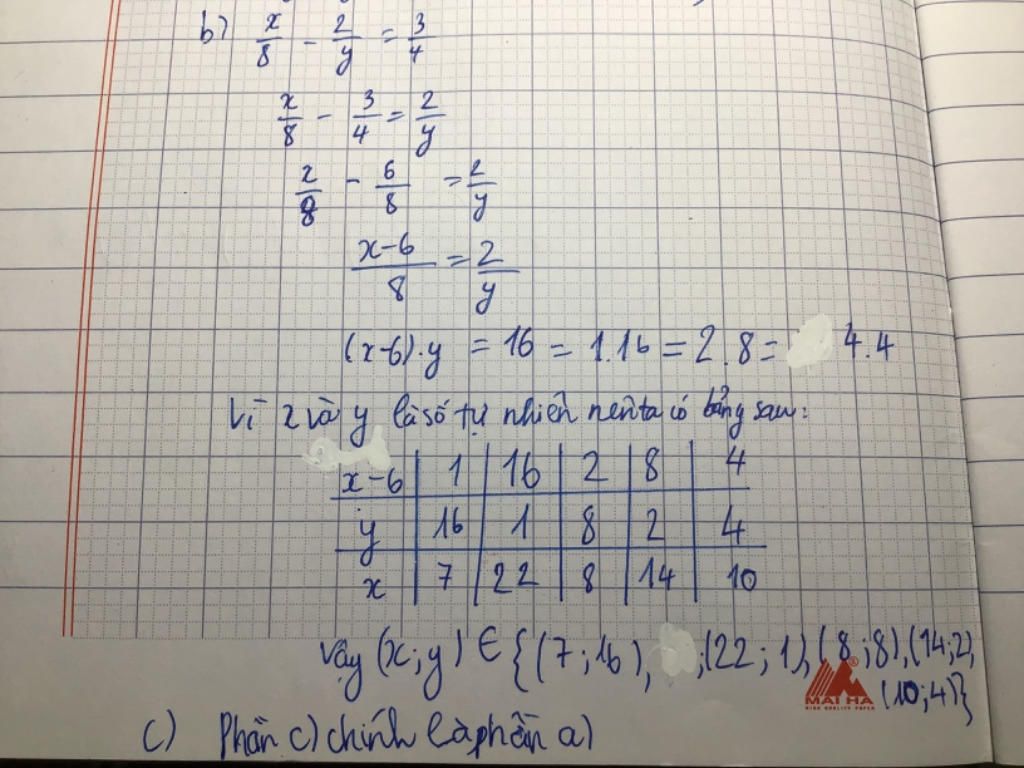 b) x/8 - 2/y = 3/4
x/8 - 3/4 = 2/y
x/8 - 6/8 = 2/y
x-6/8 = 2/y
(x-6).y = 16 = 1.16 = 2.8 = 4.4
Vì x và y là số tự nhiên nên ta có bảng sau:
x-6 | 1 | 16 | 2 | 8 | 4
y | 16 | 1 | 8 | 2 | 4
x | 7 | 22 | 8 | 14 | 10
Vậy (x;y) ∈ {(7;16), ;(22;1),(8;8),(14;2),
(10;4)}
MAI HA®
HIGH QUALITY PAPER
c) Phần c) chính là phần a)